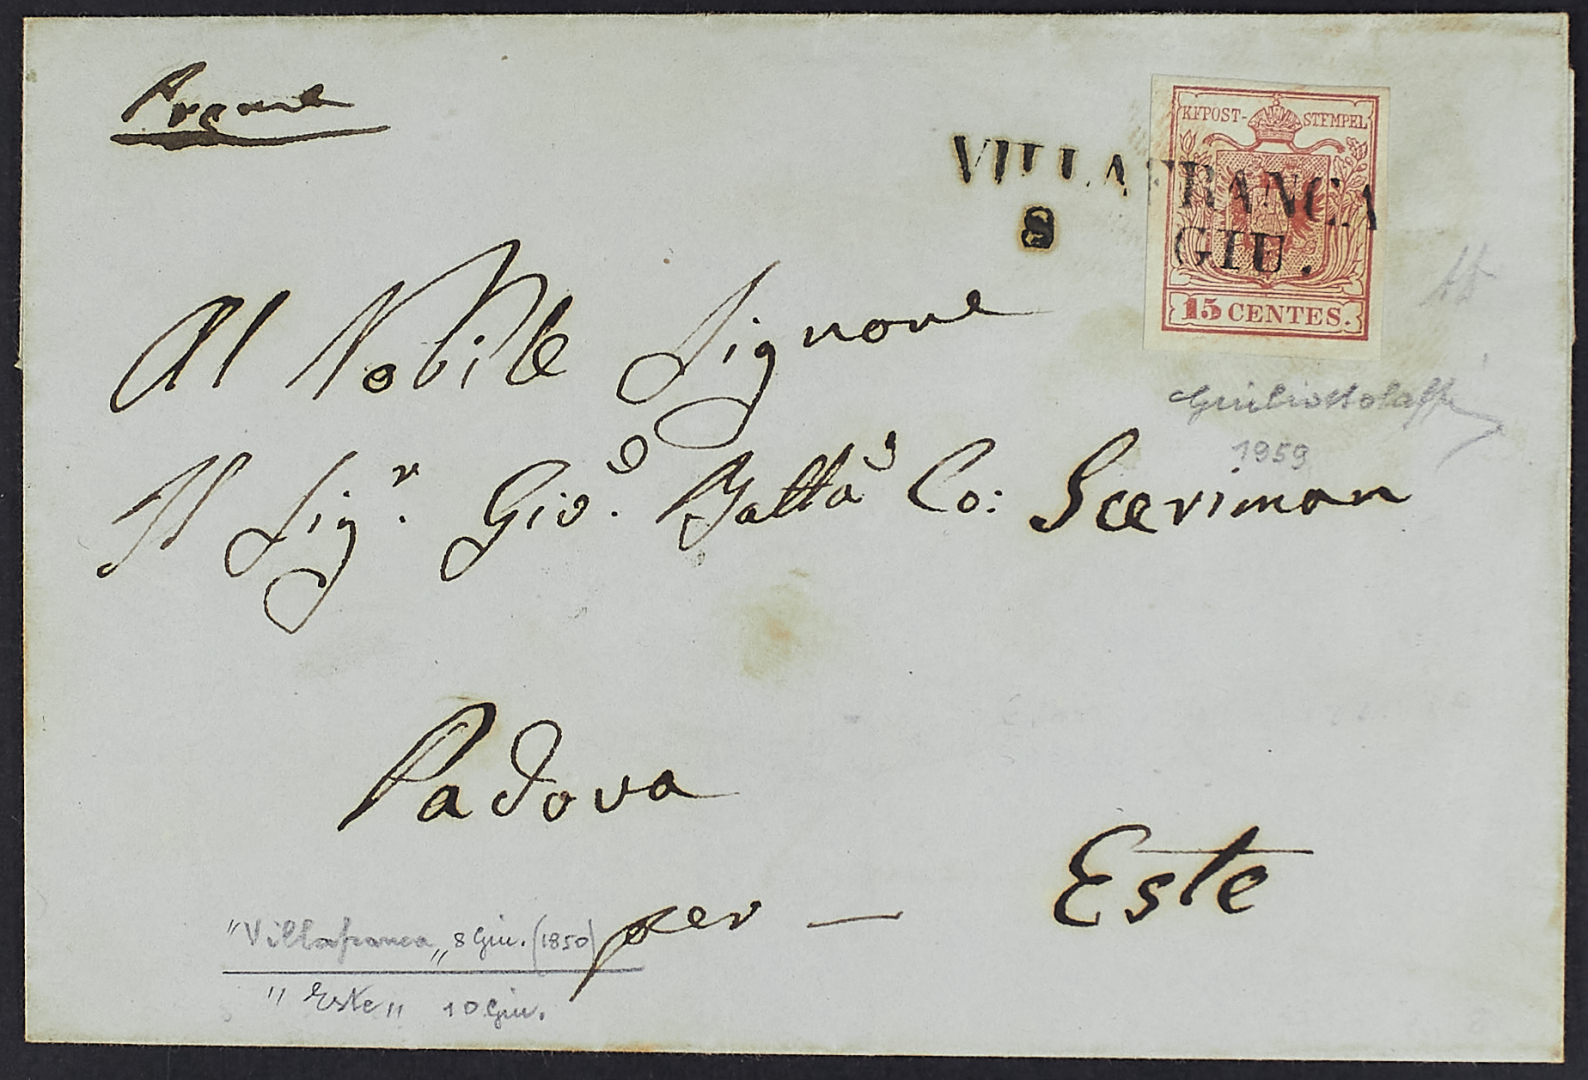 KKPOST- STEMPEL
VILLAFRANCA
8 GIU.
15 CENTES.
Al Nobile Signore
Il Sig.r Gio. Batta Co: Sceriman
1959
Padova
per — Este
"Villafranca„ 8 Giu. (1850)
"Este„ 10 Giu.